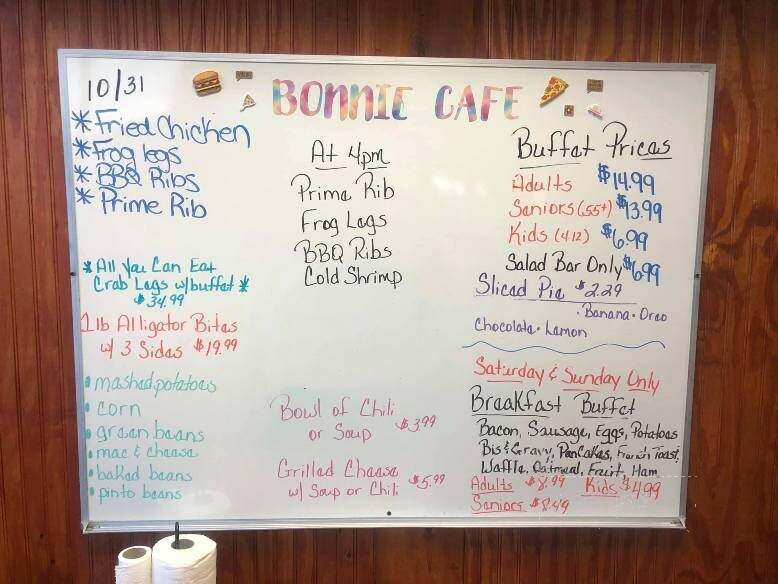 10/31
BONNIE CAFE
* Fried Chicken
* Frog legs
* BBQ Ribs
* Prime Rib
* All You Can Eat
Crab Legs w/buffet *
$34.99
1lb Alligator Bites
w/ 3 Sides $19.99
• mashed potatoes
• corn
• green beans
• mac & cheese
• baked beans
• pinto beans
At 4pm
Prime Rib
Frog Legs
BBQ Ribs
Cold Shrimp
Bowl of Chili
or Soup $3.99
Grilled Cheese
w/ Soup or Chili $5.99
Buffet Prices
Adults $14.99
Seniors (55+) $13.99
Kids (4-12) $6.99
Salad Bar Only $6.99
Sliced Pie $2.29
• Banana • Oreo
Chocolate • Lemon
Saturday & Sunday Only
Breakfast Buffet
Bacon, Sausage, Eggs, Potatoes
Bis & Gravy, Pancakes, French Toast,
Waffle, Oatmeal, Fruit, Ham
Adults $8.99 Kids $4.99
Seniors $8.49